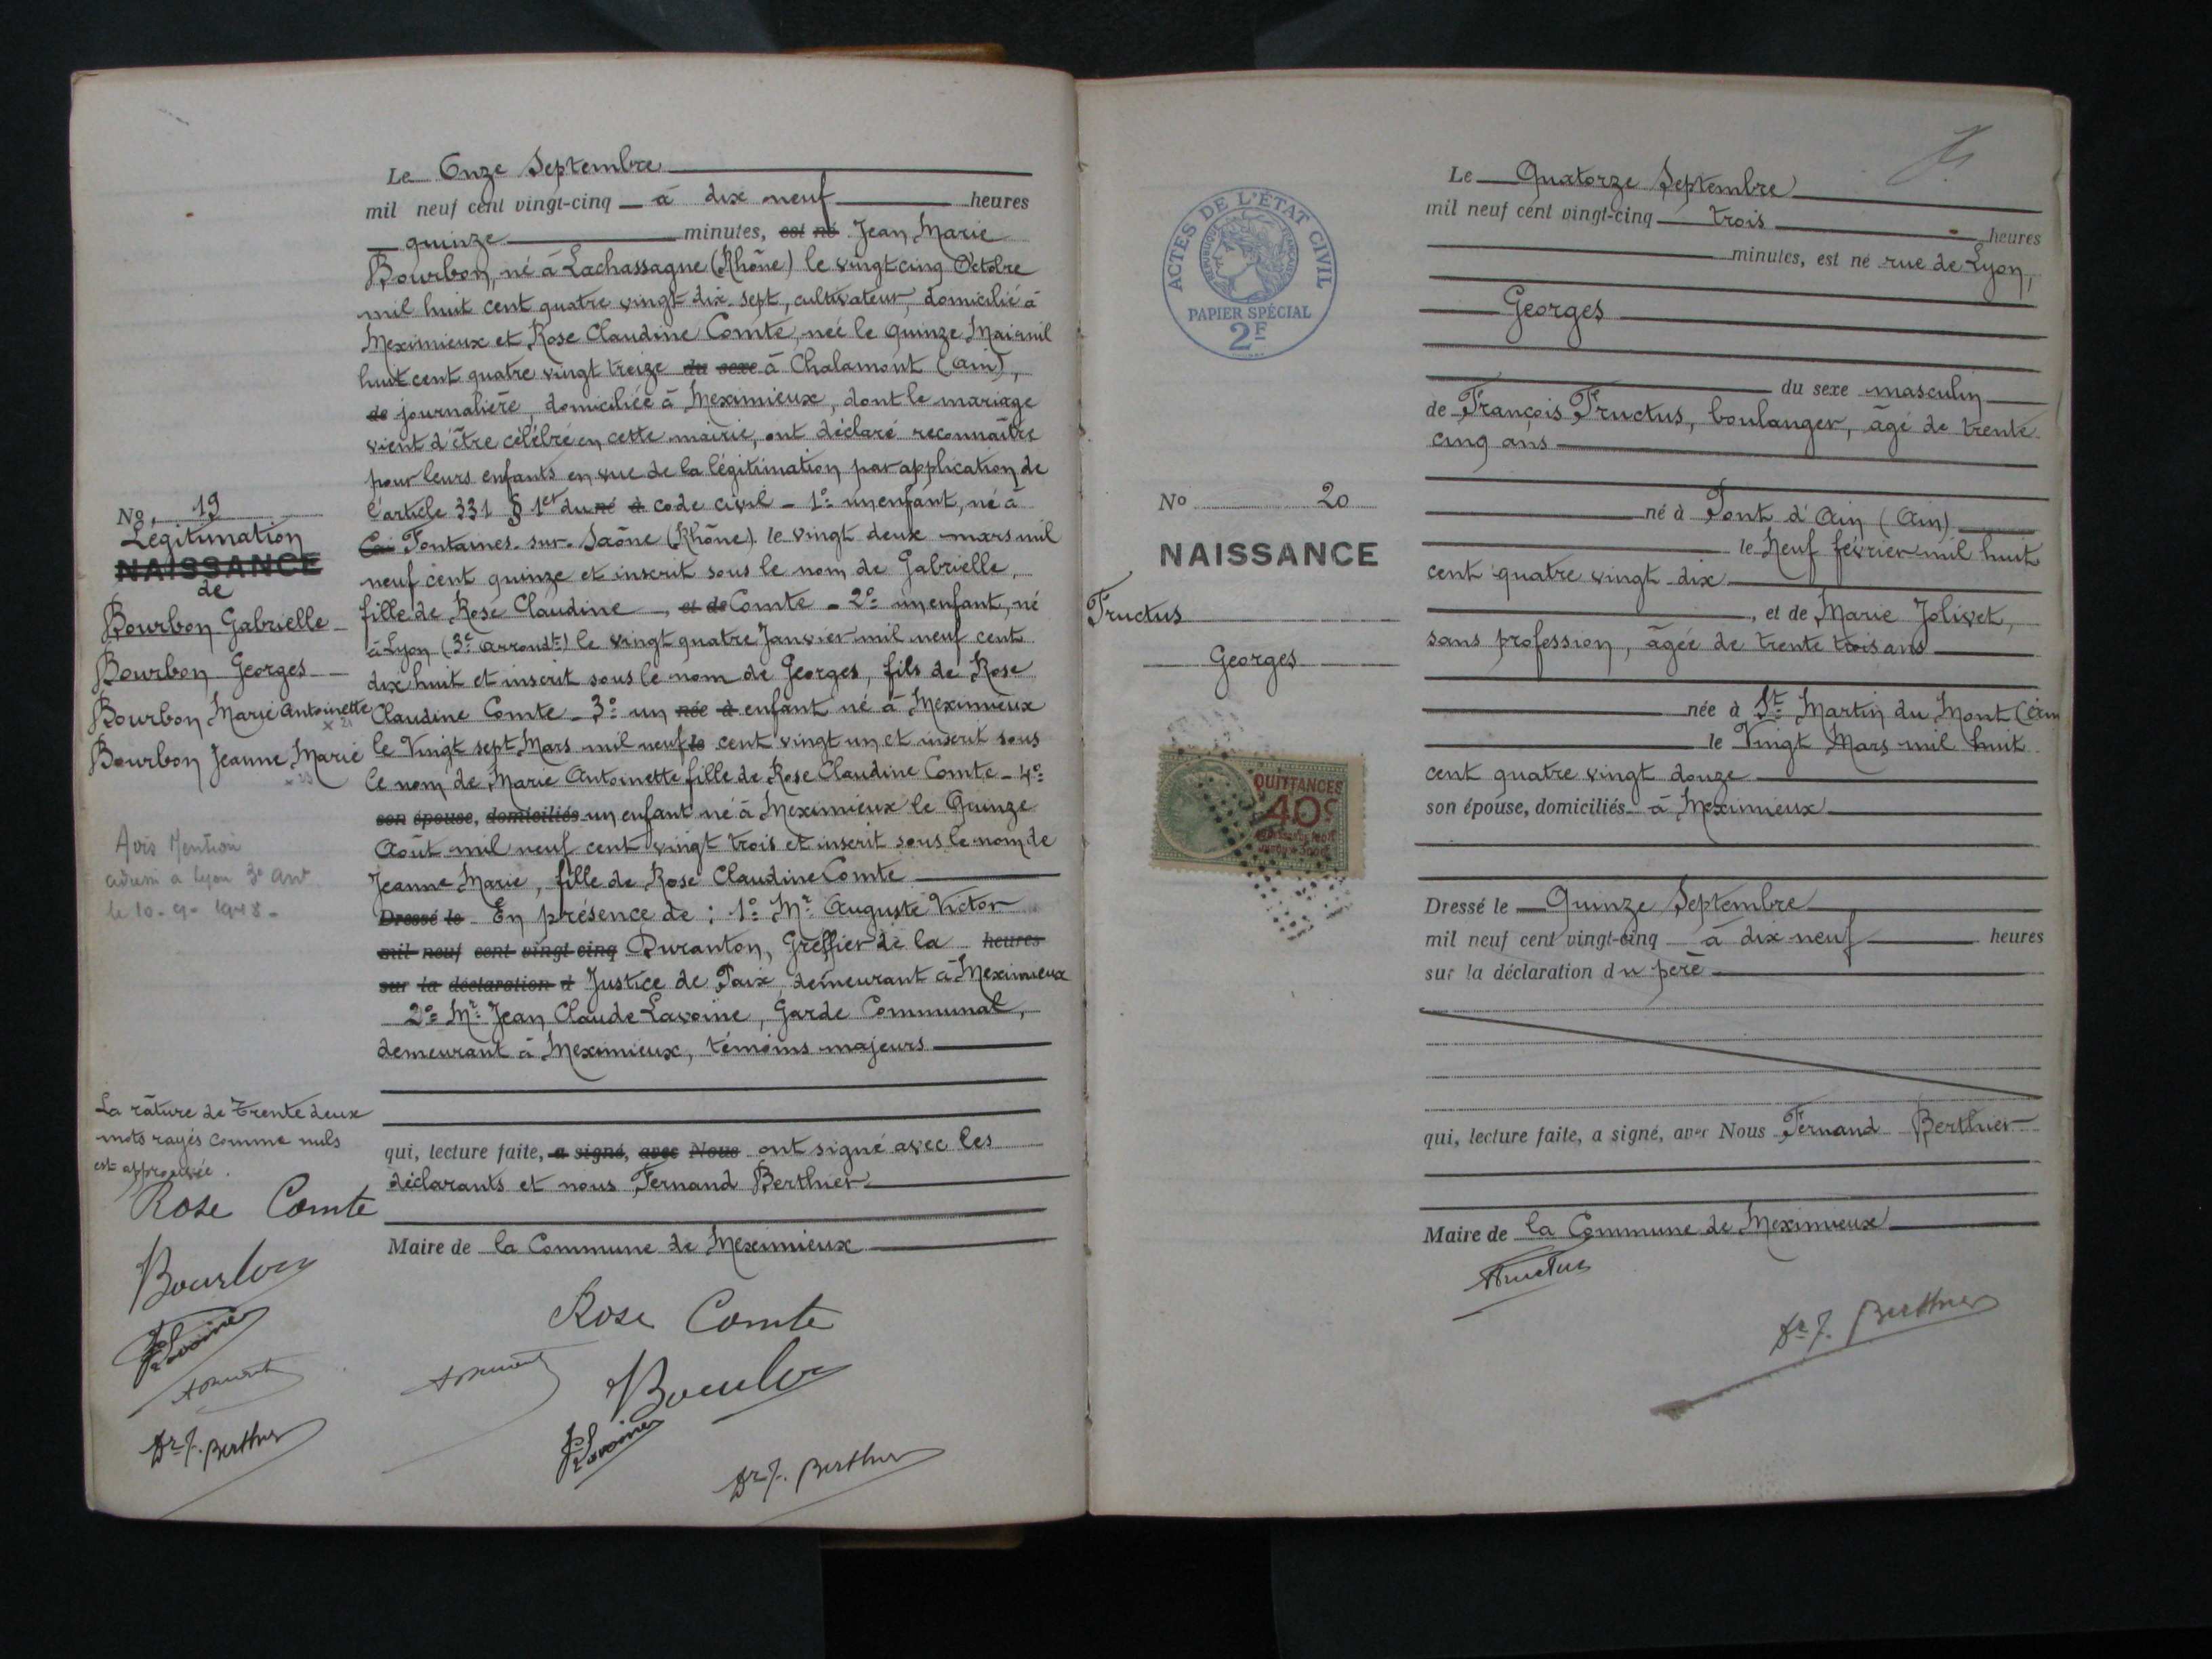 Le Onze Septembre
mil neuf cent vingt-cinq à dix neuf heures
quinze minutes, est né Jean Marie
Bourbon, né à Lachassagne (Rhône) le vingt cinq Octobre
mil huit cent quatre vingt dix-sept, cultivateur, domicilié à
Meximieux et Rose Claudine Comte, née le quinze Mai mil
huit cent quatre vingt treize du sexe à Chalamont (Ain),
de journalière, domiciliée à Meximieux, dont le mariage
vient d'être célébré en cette mairie, ont déclaré reconnaître
pour leurs enfants en vue de la légitimation par application de
l'article 331 § 1er du né à code civil - 1º un enfant, né à
Fontaines-sur-Saône (Rhône) le vingt deux mars mil
neuf cent quinze et inscrit sous le nom de Gabrielle,
fille de Rose Claudine, et de Comte - 2º un enfant, né
à Lyon (3e arrondt) le vingt quatre Janvier mil neuf cent
dix huit et inscrit sous le nom de Georges, fils de Rose
Claudine Comte - 3º un née à enfant né à Meximieux
le Vingt sept Mars mil neuf le cent vingt un et inscrit sous
le nom de Marie Antoinette fille de Rose Claudine Comte - 4º
son épouse, domiciliés un enfant né à Meximieux le Quinze
Août mil neuf cent vingt trois et inscrit sous le nom de
Jeanne Marie, fille de Rose Claudine Comte
Dressé le En présence de : 1º Mr Auguste Victor
mil neuf cent vingt-cinq Duranton, Greffier de la heures
sur la déclaration d Justice de Paix, demeurant à Meximieux
2º Mr Jean Claude Lavoine, Garde Communal,
demeurant à Meximieux, témoins majeurs
qui, lecture faite, a signé, avec Nous ont signé avec les
déclarants et nous Fernand Berthier
Maire de la Commune de Meximieux
Rose Comte
Bourbon
Lavoine
Dr F. Berthier
No 19
Légitimation
NAISSANCE
de
Bourbon Gabrielle
Bourbon Georges
Bourbon Marie Antoinette
x 21
Bourbon Jeanne Marie
x 23
Avis Mention
adressé a Lyon 3e arr
le 10-9-1948-
La râture de trente deux
mots rayés comme nuls
est approuvée.
Rose Comte
Bourbon
Lavoine
Dr F. Berthier
ACTES DE L'ÉTAT CIVIL
RÉPUBLIQUE FRANÇAISE
PAPIER SPÉCIAL
2F
No 20
NAISSANCE
Fructus
Georges
QUITTANCES
40c
Le Quatorze Septembre
mil neuf cent vingt-cinq trois heures
minutes, est né rue de Lyon,
Georges
du sexe masculin
de François Fructus, boulanger, âgé de trente
cinq ans
né à Pont d'Ain (Ain)
le Neuf février mil huit
cent quatre vingt-dix
, et de Marie Jolivet,
sans profession, âgée de trente trois ans
née à St Martin du Mont (Ain
le Vingt Mars mil huit
cent quatre vingt douze
son épouse, domiciliés à Meximieux
Dressé le Quinze Septembre
mil neuf cent vingt-cinq à dix neuf heures
sur la déclaration du père
qui, lecture faite, a signé, avec Nous Fernand Berthier
Maire de la Commune de Meximieux
Fructus
Dr F. Berthier